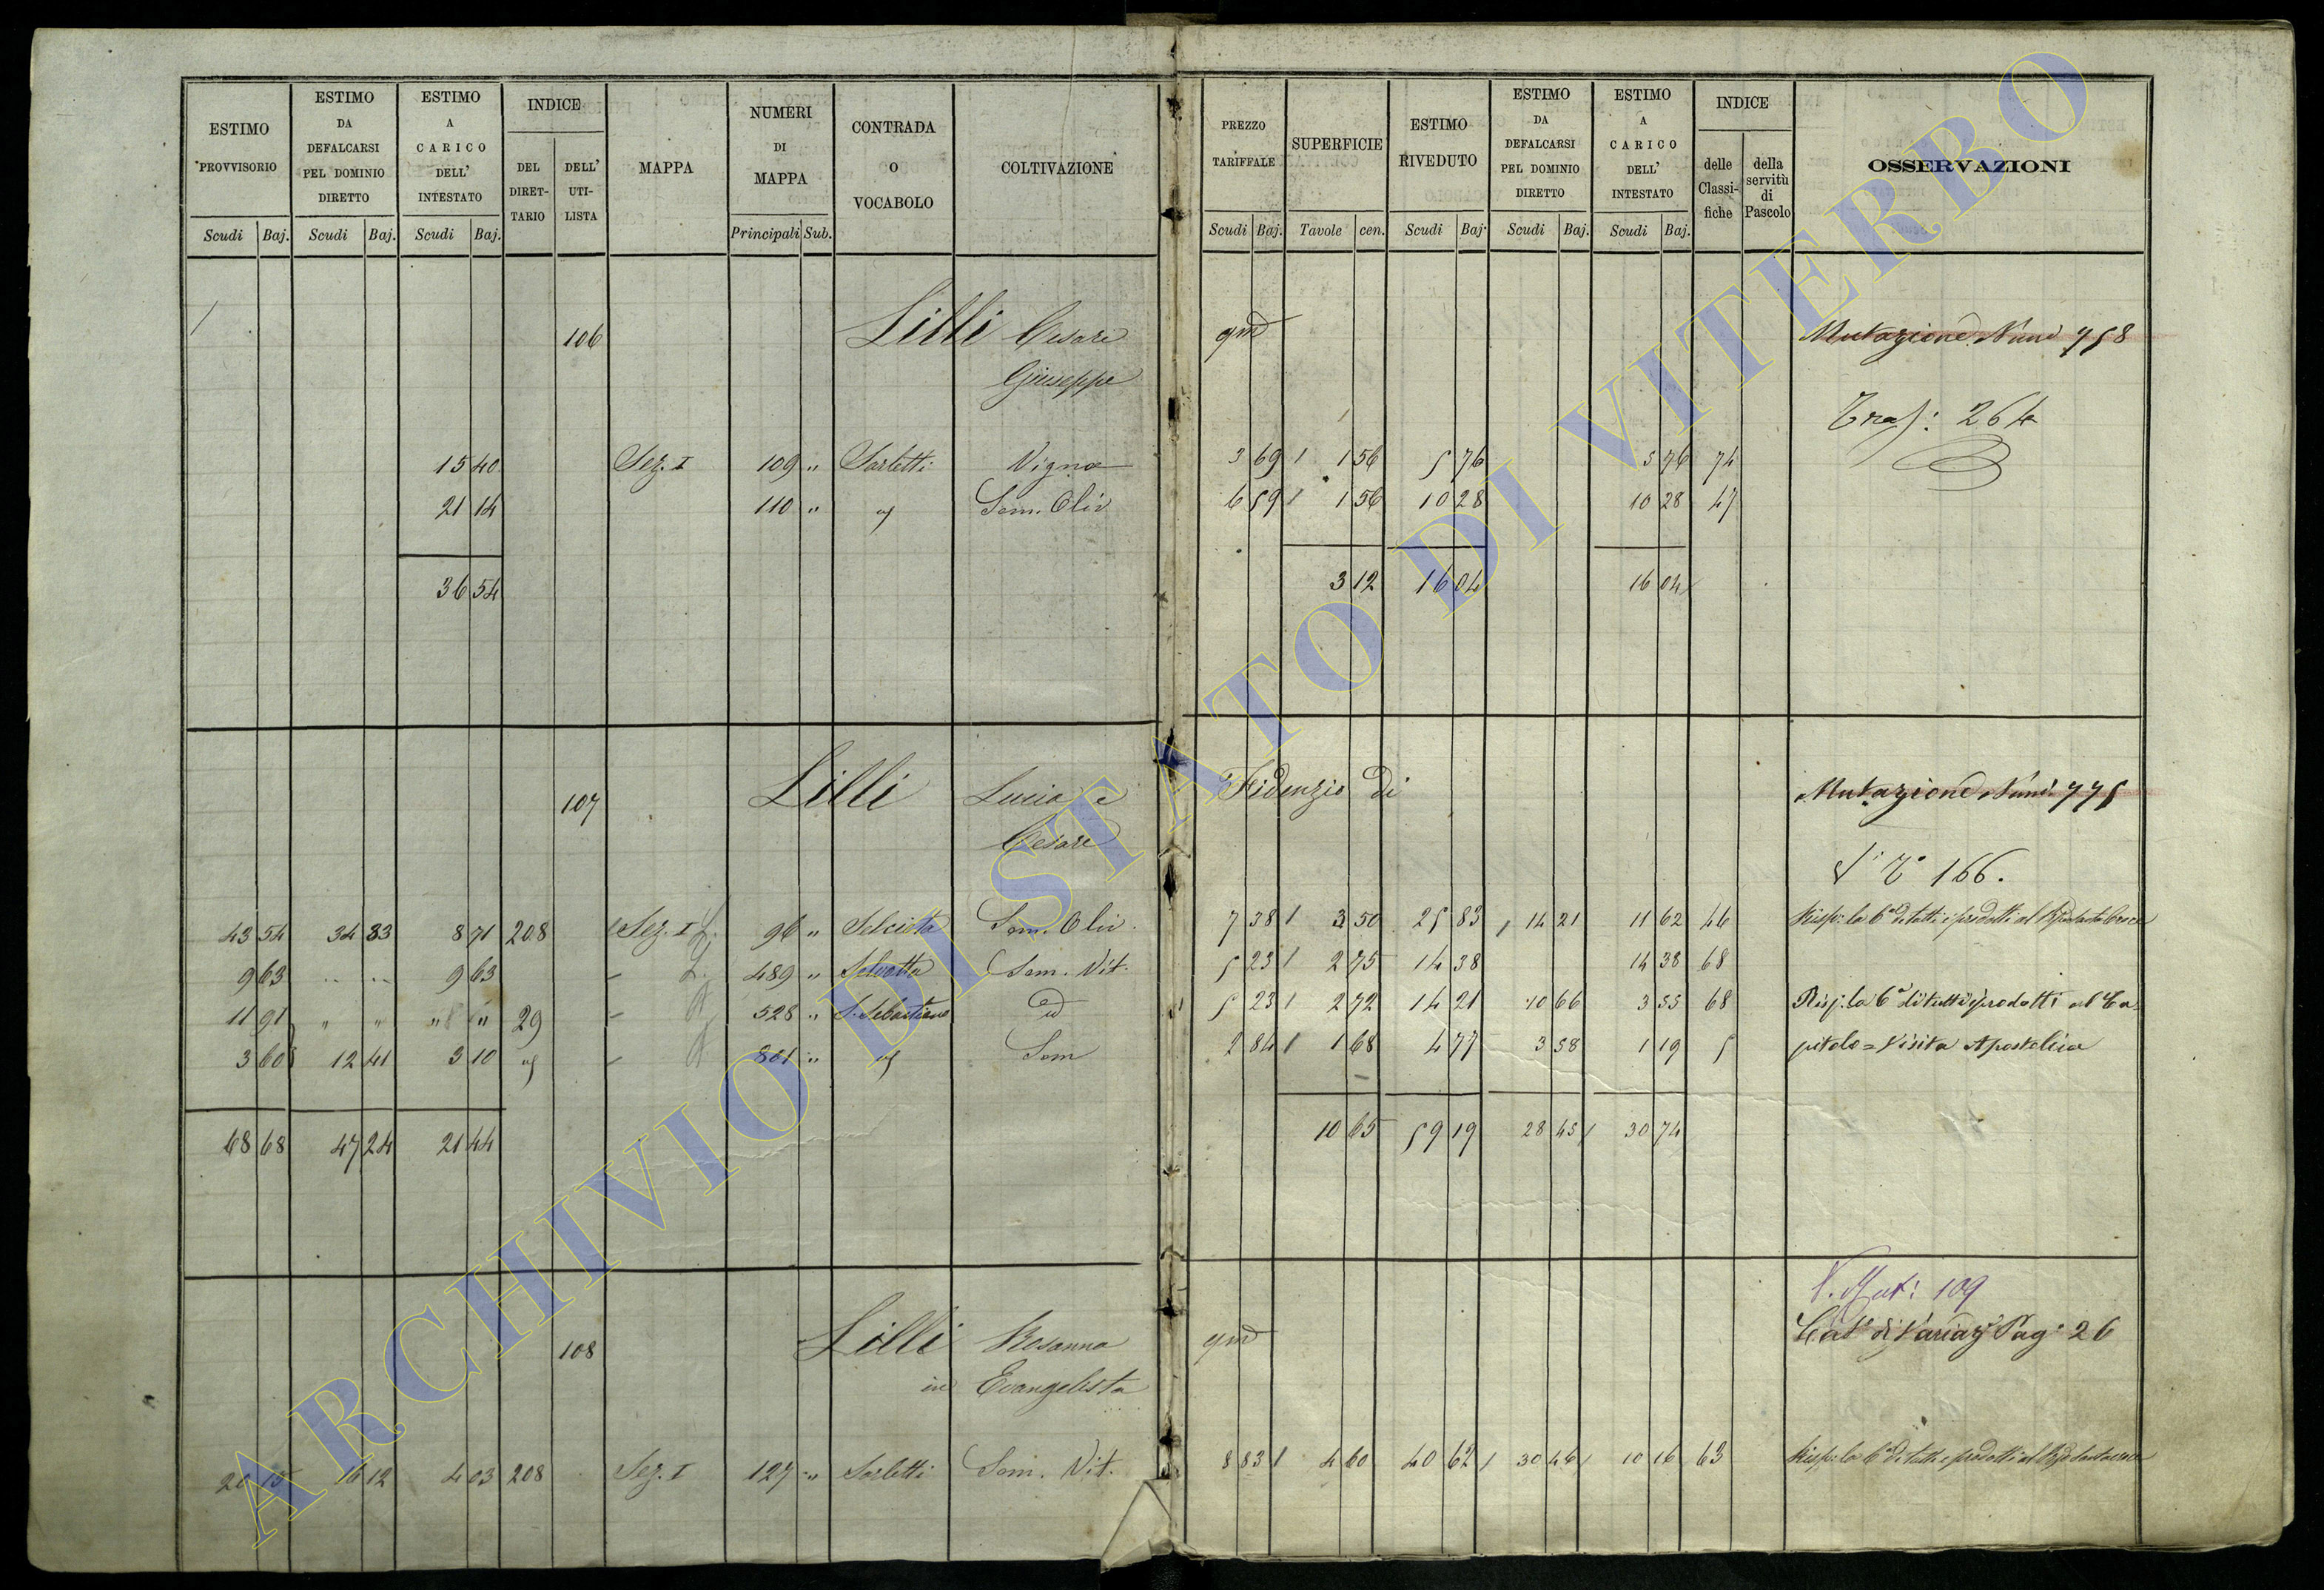 ESTIMO PROVVISORIO
ESTIMO DA DEFALCARSI PEL DOMINIO DIRETTO
ESTIMO A CARICO DELL' INTESTATO
INDICE
DEL DIRET-TARIO
DELL' UTI-LISTA
MAPPA
NUMERI DI MAPPA
CONTRADA O VOCABOLO
COLTIVAZIONE
PREZZO TARIFFALE
SUPERFICIE
ESTIMO RIVEDUTO
ESTIMO DA DEFALCARSI PEL DOMINIO DIRETTO
ESTIMO A CARICO DELL' INTESTATO
INDICE
delle Classi-fiche
della servitù di Pascolo
OSSERVAZIONI
Scudi Baj. Scudi Baj. Scudi Baj. Principali Sub. Scudi Baj. Tavole cen. Scudi Baj. Scudi Baj. Scudi Baj.
106 Lilli Cesare qm Mutazione Num 758
Giuseppe
Tras: 264
15 40 Sez. I 109 " Sarletti Vigna 3 69 1 56 5 76 5 76 74
21 14 110 " Sem. Oliv 6 59 1 56 10 28 10 28 47
36 54 3 12 16 04 16 04
107 Lilli Lucia e Fidenzio di Mutazione Num 775
Cesare
166.
43 54 34 83 8 71 208 Sez. I 96 " Selciata Sem. Oliv. 7 38 3 50 25 83 14 21 11 62 46
9 63 .. .. 9 63 489 " Selvotta Sem. Vit. 5 23 2 75 14 38 14 38 68
11 91 " " " " 29 528 " S. Sebastiano id 5 23 2 72 14 21 10 66 3 55 68 Risp: la 6a di tutti i prodotti al Ca=
3 60 12 41 3 10 801 " Sem 2 84 1 68 4 77 3 58 1 19 5 pitolo = Visita Apostolica
68 68 47 24 21 44 10 65 59 19 28 45 30 74
V. Mut: 109
108 Lilli Rosanna qm Cato di Variazi Pag. 26
in Evangelista
20 15 16 12 4 03 208 Sez. I 127 " Sarletti Sem. Vit. 8 83 4 60 40 62 30 46 10 16 63
ARCHIVIO DI STATO DI VITERBO